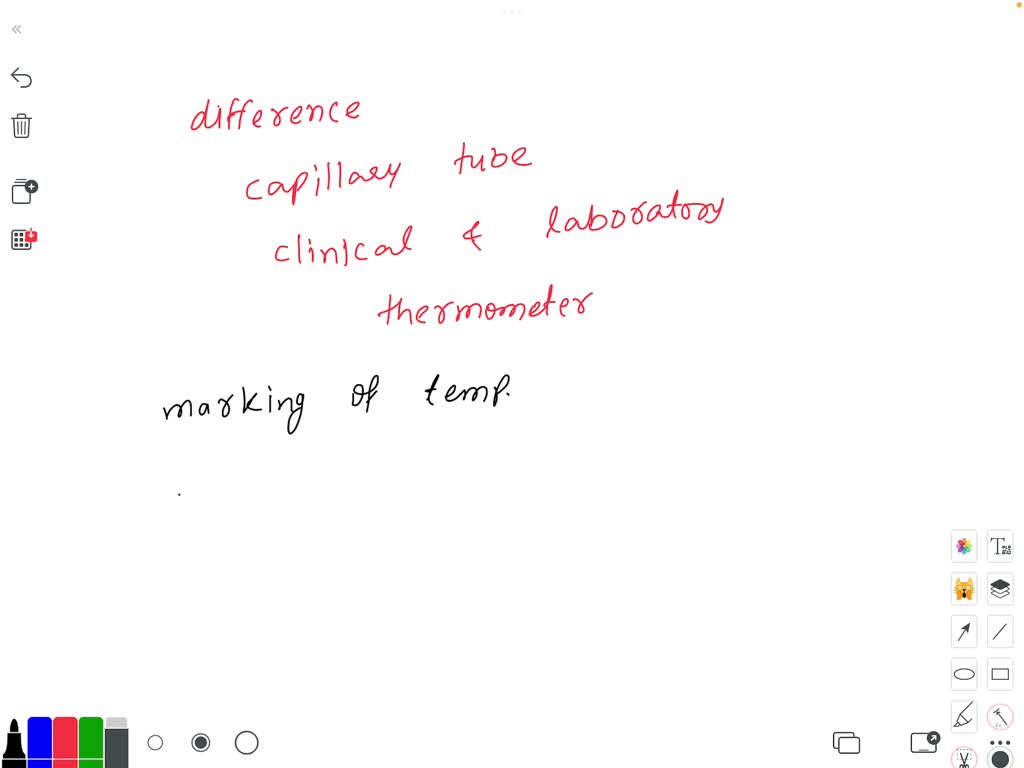 difference
capillary tube
clinical & laboratory
thermometer
marking of temp.